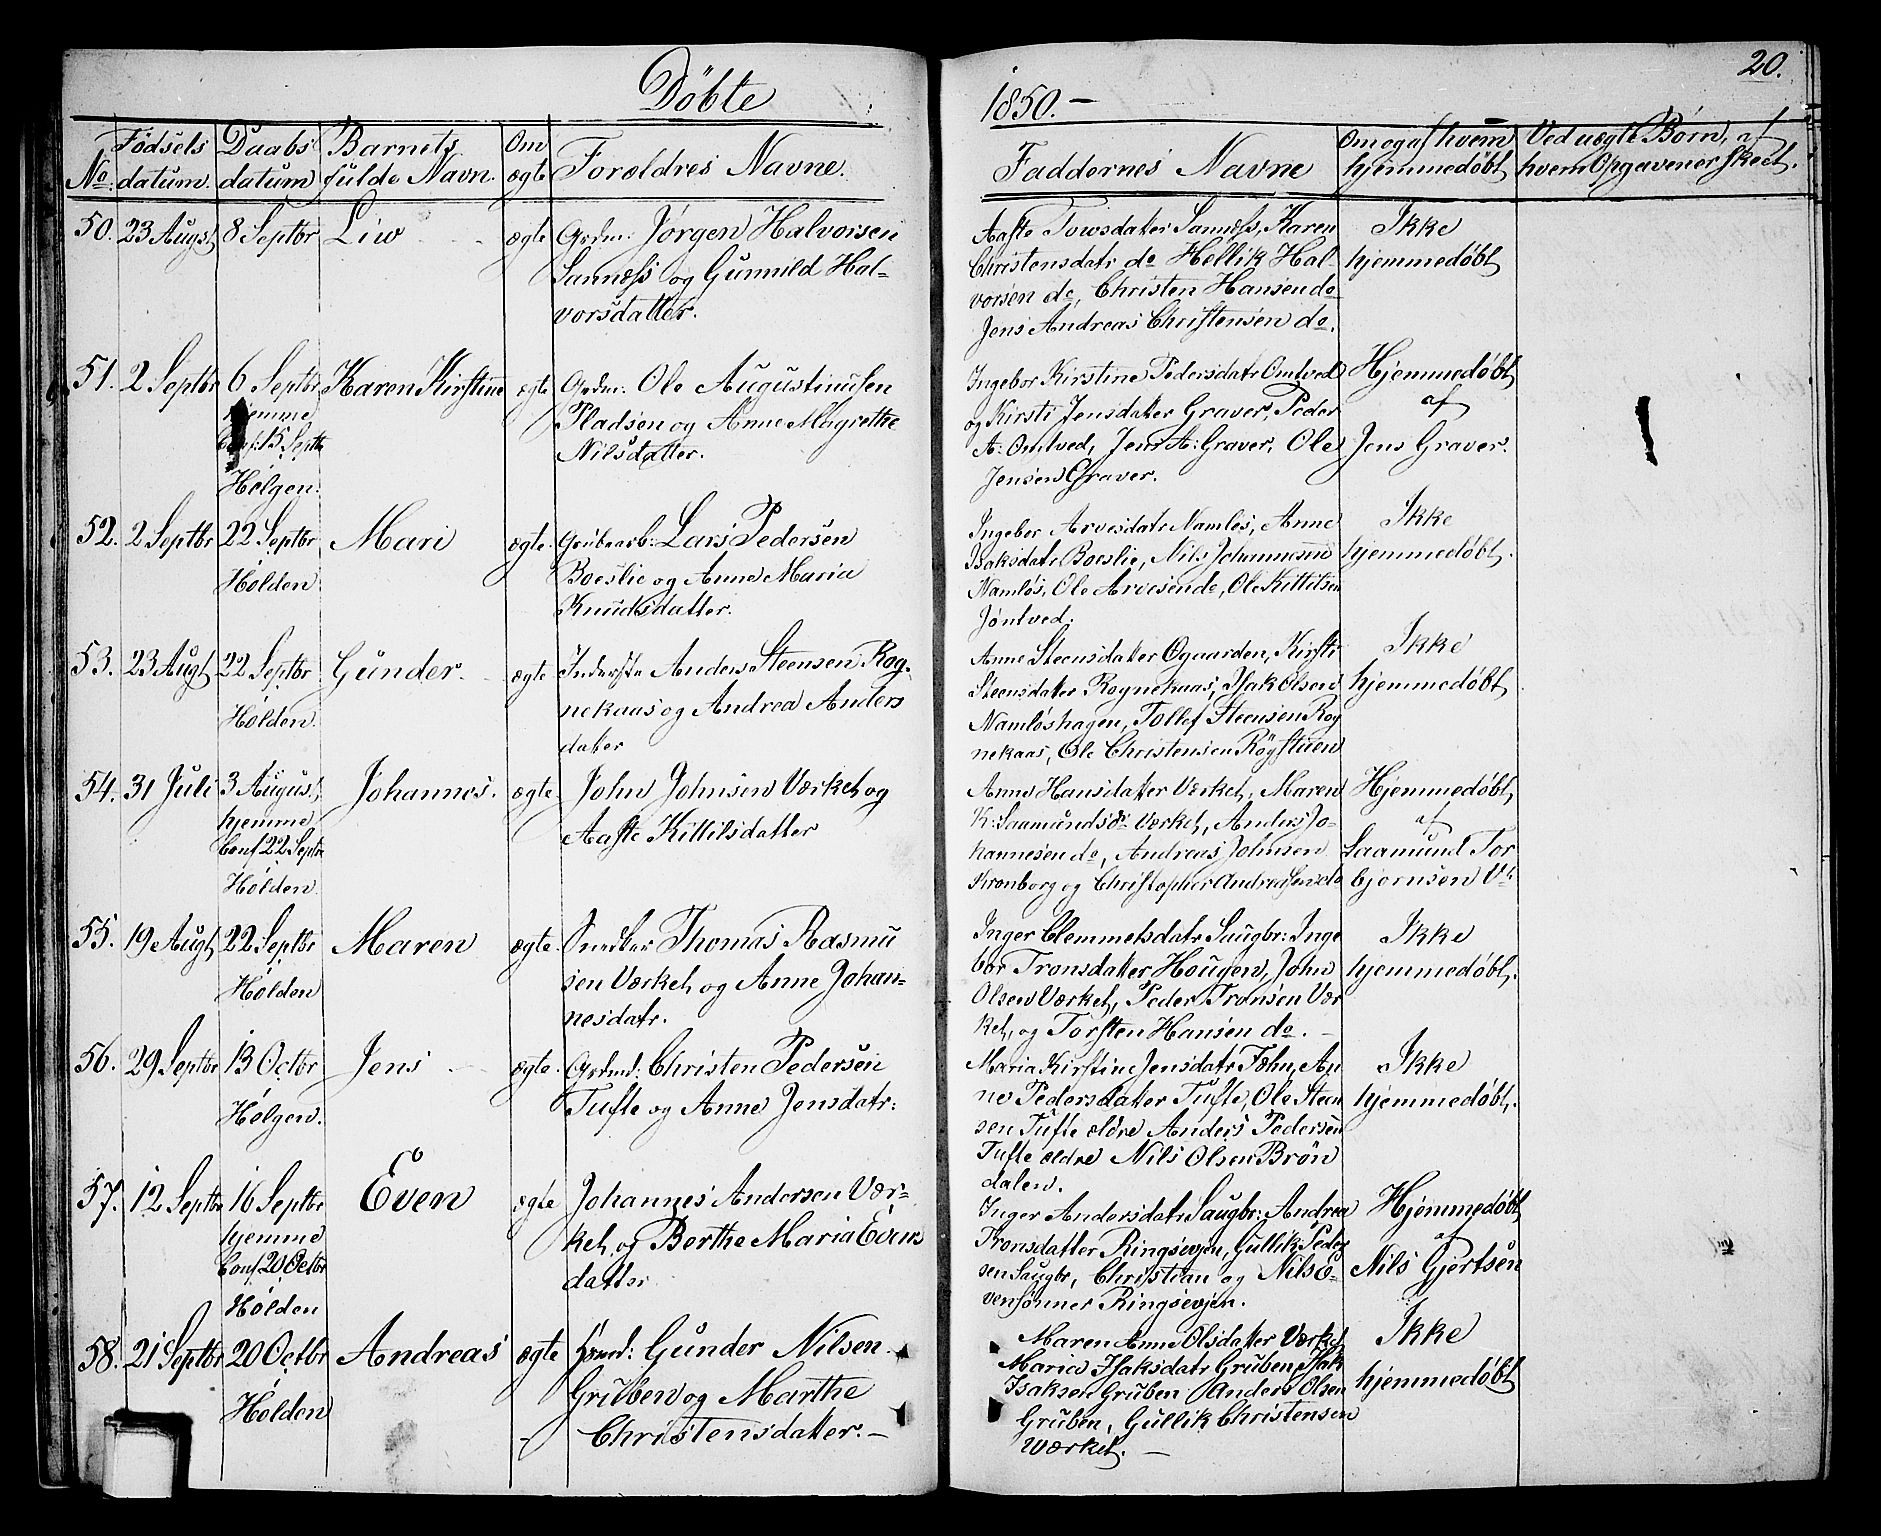 Döbte
1850.—
20.
No. Fødsels datum. Daabs datum Barnets fulde Navn. Om ægte Forældres Navne.
Faddernes Navne Om og af hvem hjemmedøbt Ved uægte Børn, af hvem Opgaven er skeet.
50. 23 Augst 8 Septbr Liw ægte Grdm: Jørgen Halvorsen
Sannæss og Gunnild Hal-
vorsdatter.
Aaste Towsdatter Sannæss, Karen
Christensdatr do Hellik Hal-
vorsen do, Christen Hansen do
Jens Andreas Christensen do.
Ikke
hjemmedøbt
51. 2 Septbr 6 Septbr Karen Kirstine ægte Grdm: Ole Augustinusen
hjemme
Conf. 15 Septbr
Hølgen.
Pladsen og Anne Magrethe
Nilsdatter.
Ingebor Kirstine Pedersdatr Omtved
og Kirsti Jensdatter Graver, Peder
A: Omtved, Jens A: Graver, Ole
Jensen Graver.
Hjemmedøbt
af
Jens Graver.
52. 2 Septbr 22 Septbr Mari ægte. Grubearb: Lars Pedersen
Holden
Boeslie og Anne Maria
Knudsdatter.
Ingebor Arvesdatr Namløs, Anne
Isaksdatr Boeslie, Nils Johannesen
Namløs, Ole Arvesen do, Ole Kittilsen
Jøntved.
Ikke
hjemmedøbt.
53. 23 Augt 22 Septbr Gunder ægte Inderste Anders Steensen Rog-
Holden
nekaas og Andrea Anders
datter
Anne Steensdatter Ogaarden, Kirsti
Steensdatter Rognekaas, Isak Olsen
Namløshagen, Tollef Steensen Rog
nekaas, Ole Christensen Röystuen
Ikke
hjemmedøbt,
54. 31 Juli 3 August, Johannes. ægte John Johnsen Værket og
hjemme
Conf 22 Septr
Holden
Aaste Kittilsdatter
Anne Hansdatter Værket, Maren
K: Saamundsdr Værket, Anders Jo-
hannesen do, Andreas Johnsen
Kronborg og Christopher Andreasen do
Hjemmedøbt,
af
Saamund Tor
bjørnsen V.
55. 19 Augt 22 Septbr Maren ægte. Snedker Thomas Rasmu
Holden
sen Værket, og Anne Johan-
nesdatr.
Inger Clemmetsdatr Saugbr: Inge
bor Tronsdatter Hougen, John
Olsen Værket, Peder Tronsen Vær
ket, og Torsten Hansen do. —
Ikke
hjemmedøbt.
56. 29 Septbr 13 Octbr Jens ægte. Grdmd: Christen Pedersen
Hølgen.
Tufte og Anne Jensdatr:
Maria Kirstine Jensdatr Fæhn, An
ne Pedersdatter Tufte, Ole Steen
sen Tufte ældre Anders Pedersen
Tufte ældre Nils Olsen Brön
dalen.
Ikke
hjemmedøbt.
57. 12 Septbr 16 Septbr Even ægte Johannes Andersen Vær-
hjemme
Conf 20 Octbr
Holden
ket, og Berthe Maria Evens
datter
Inger Andersdatr Saugbr: Andrea
Tronsdatter Ringsevjen, Gullik Peder
sen Saugbr, Christian og Nils E-
vensønner Ringsevjen.
Hjemmedøbt,
af
Nils Gjertsen
58. 21 Septbr 20 Octbr Andreas ægte Huusmd: Gunder Nilsen
Holden
Gruben og Marthe
Christensdatter. —
Maren Anne Olsdatter Værket,
Maria Isaksdatr Gruben Isak
Isaksen Gruben Anders Olsen
Gruben, Gullik Christensen
Værket. —
Ikke
hjemmedøbt